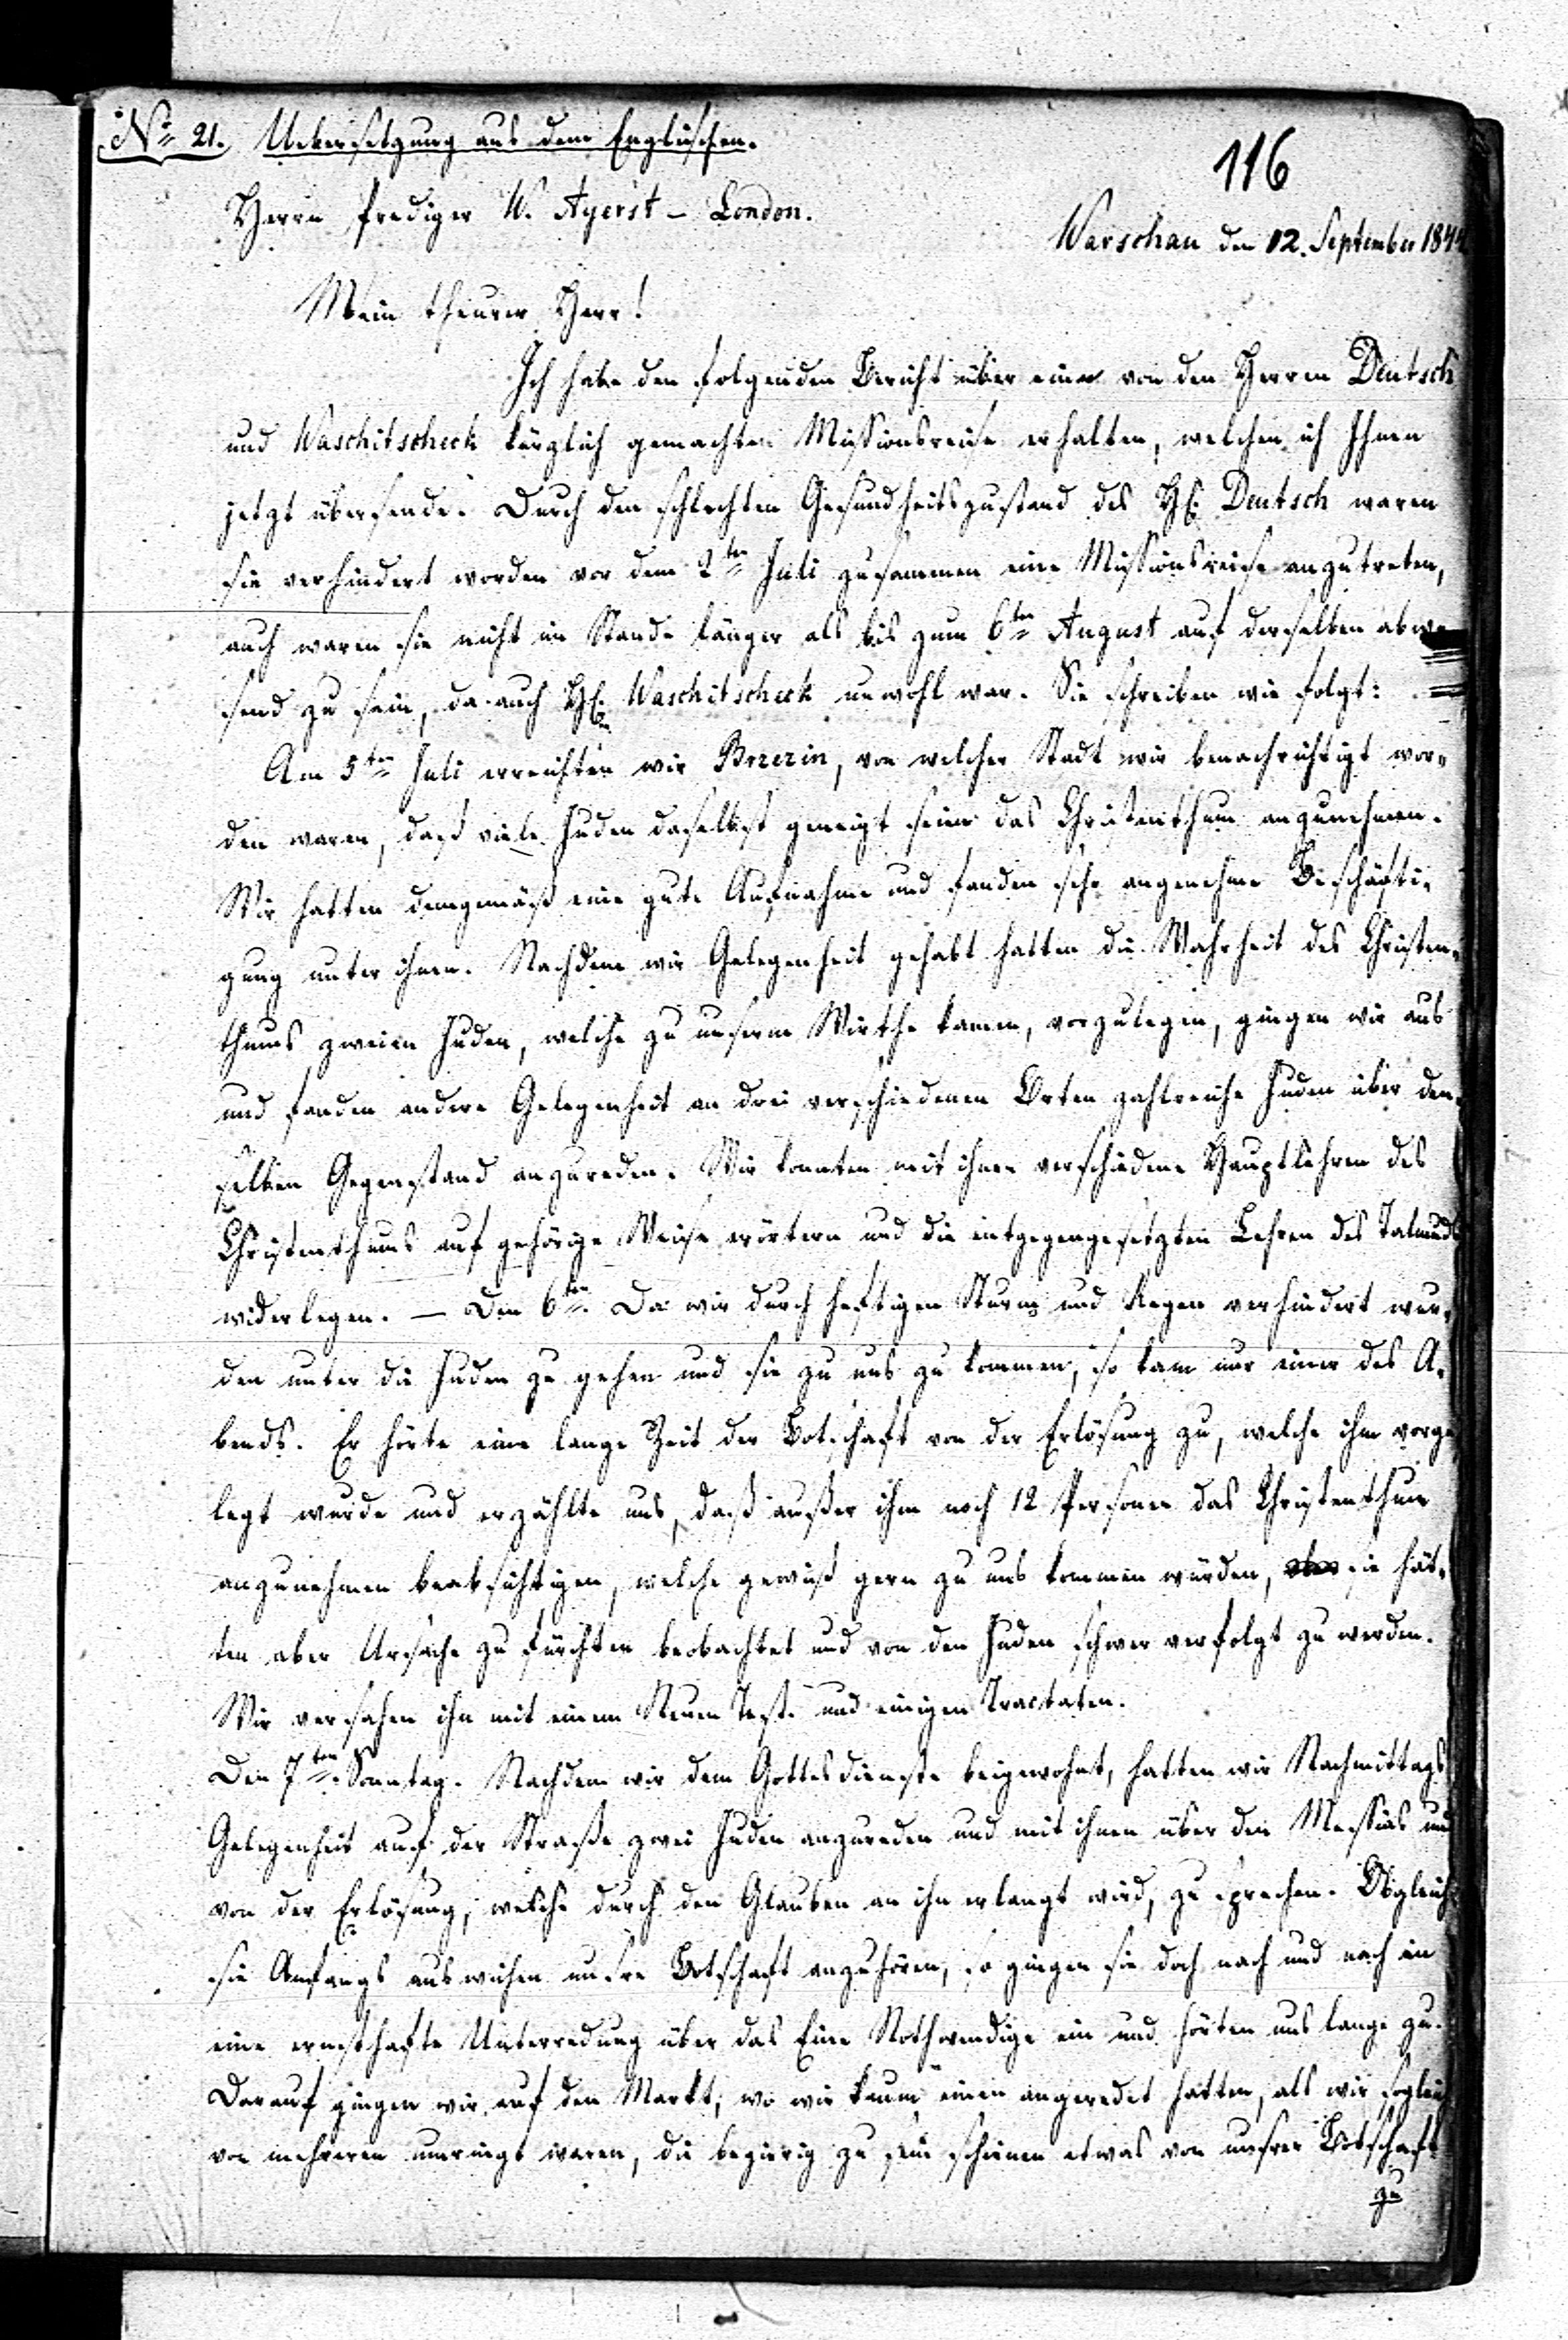 No 21. Uebersetzung aus dem Englischen.
116
Herrn Prediger W. Ayerst – London.
Warschau den 12. September 1844
Mein theurer Herr!
Ich habe den folgenden Bericht über eine von den Herren Deutsch
und Waschitscheck kürzlich gemachten Missionsreise erhalten, welchen ich Ihnen
jetzt übersende. Durch den schlechten Gesundheitszustand des H. Deutsch waren
sie verhindert worden vor dem 2ten Juli zusammen eine Missionsreise anzutreten,
auch waren sie nicht im Stande länger als bis zum 6ten August auf derselben abwe-
send zu sein, da auch H. Waschitscheck unwohl war. Sie schreiben wie folgt:
Am 5ten Juli erreichten wir Brzezin, von welcher Stadt wir benachrichtigt wor-
den waren, daß viele Juden daselbst geneigt seien das Christenthum anzunehmen.
Wir hatten demgemäß eine gute Aufnahme und fanden sehr angenehme Beschäfti-
gung unter ihnen. Nachdem wir Gelegenheit gehabt hatten die Wahrheit des Christen-
thums zweien Juden, welche zu unserm Wirthe kamen, vorzulegen, gingen wir aus
und fanden andere Gelegenheit an drei verschiedenen Orten zahlreiche Juden über den-
selben Gegenstand anzureden. Wir konnten mit ihnen verschiedene Hauptlehren des
Christenthums auf gehörige Weise erörtern und die entgegengesetzten Lehren des Talmuds
widerlegen. – Den 6ten. Da wir durch heftigen Sturm und Regen verhindert wur-
den unter die Juden zu gehen und sie zu uns zu kommen, so kam nur einer des A-
bends. Er hörte eine lange Zeit der Botschaft von der Erlösung zu, welche ihm vorge-
legt wurde und erzählte uns, daß außer ihm noch 12 Personen das Christenthum
anzunehmen beabsichtigen, welche gewiß gern zu uns kommen würden, sie hät-
ten aber Ursache zu fürchten beobachtet und von den Juden schwer verfolgt zu werden.
Wir versahen ihn mit einem Neuen Test. und einigen Tractaten.
Den 7ten Sonntag. Nachdem wir dem Gottesdienste beigewohnt, hatten wir Nachmittags
Gelegenheit auf der Straße zwei Juden anzureden und mit ihnen über den Messias und
von der Erlösung, welche durch den Glauben an ihn erlangt wird, zu sprechen. Obgleich
sie Anfangs auswichen unsre Botschaft anzuhören, so gingen sie doch nach und nach in
eine ernsthafte Unterredung über das Eine Nothwendige ein und hörten uns lange zu.
Darauf gingen wir auf den Markt, wo wir kaum einen angeredet hatten, als wir sogleich
von mehreren umringt waren, die begierig zu sein schienen etwas von unsrer Botschaft
zu